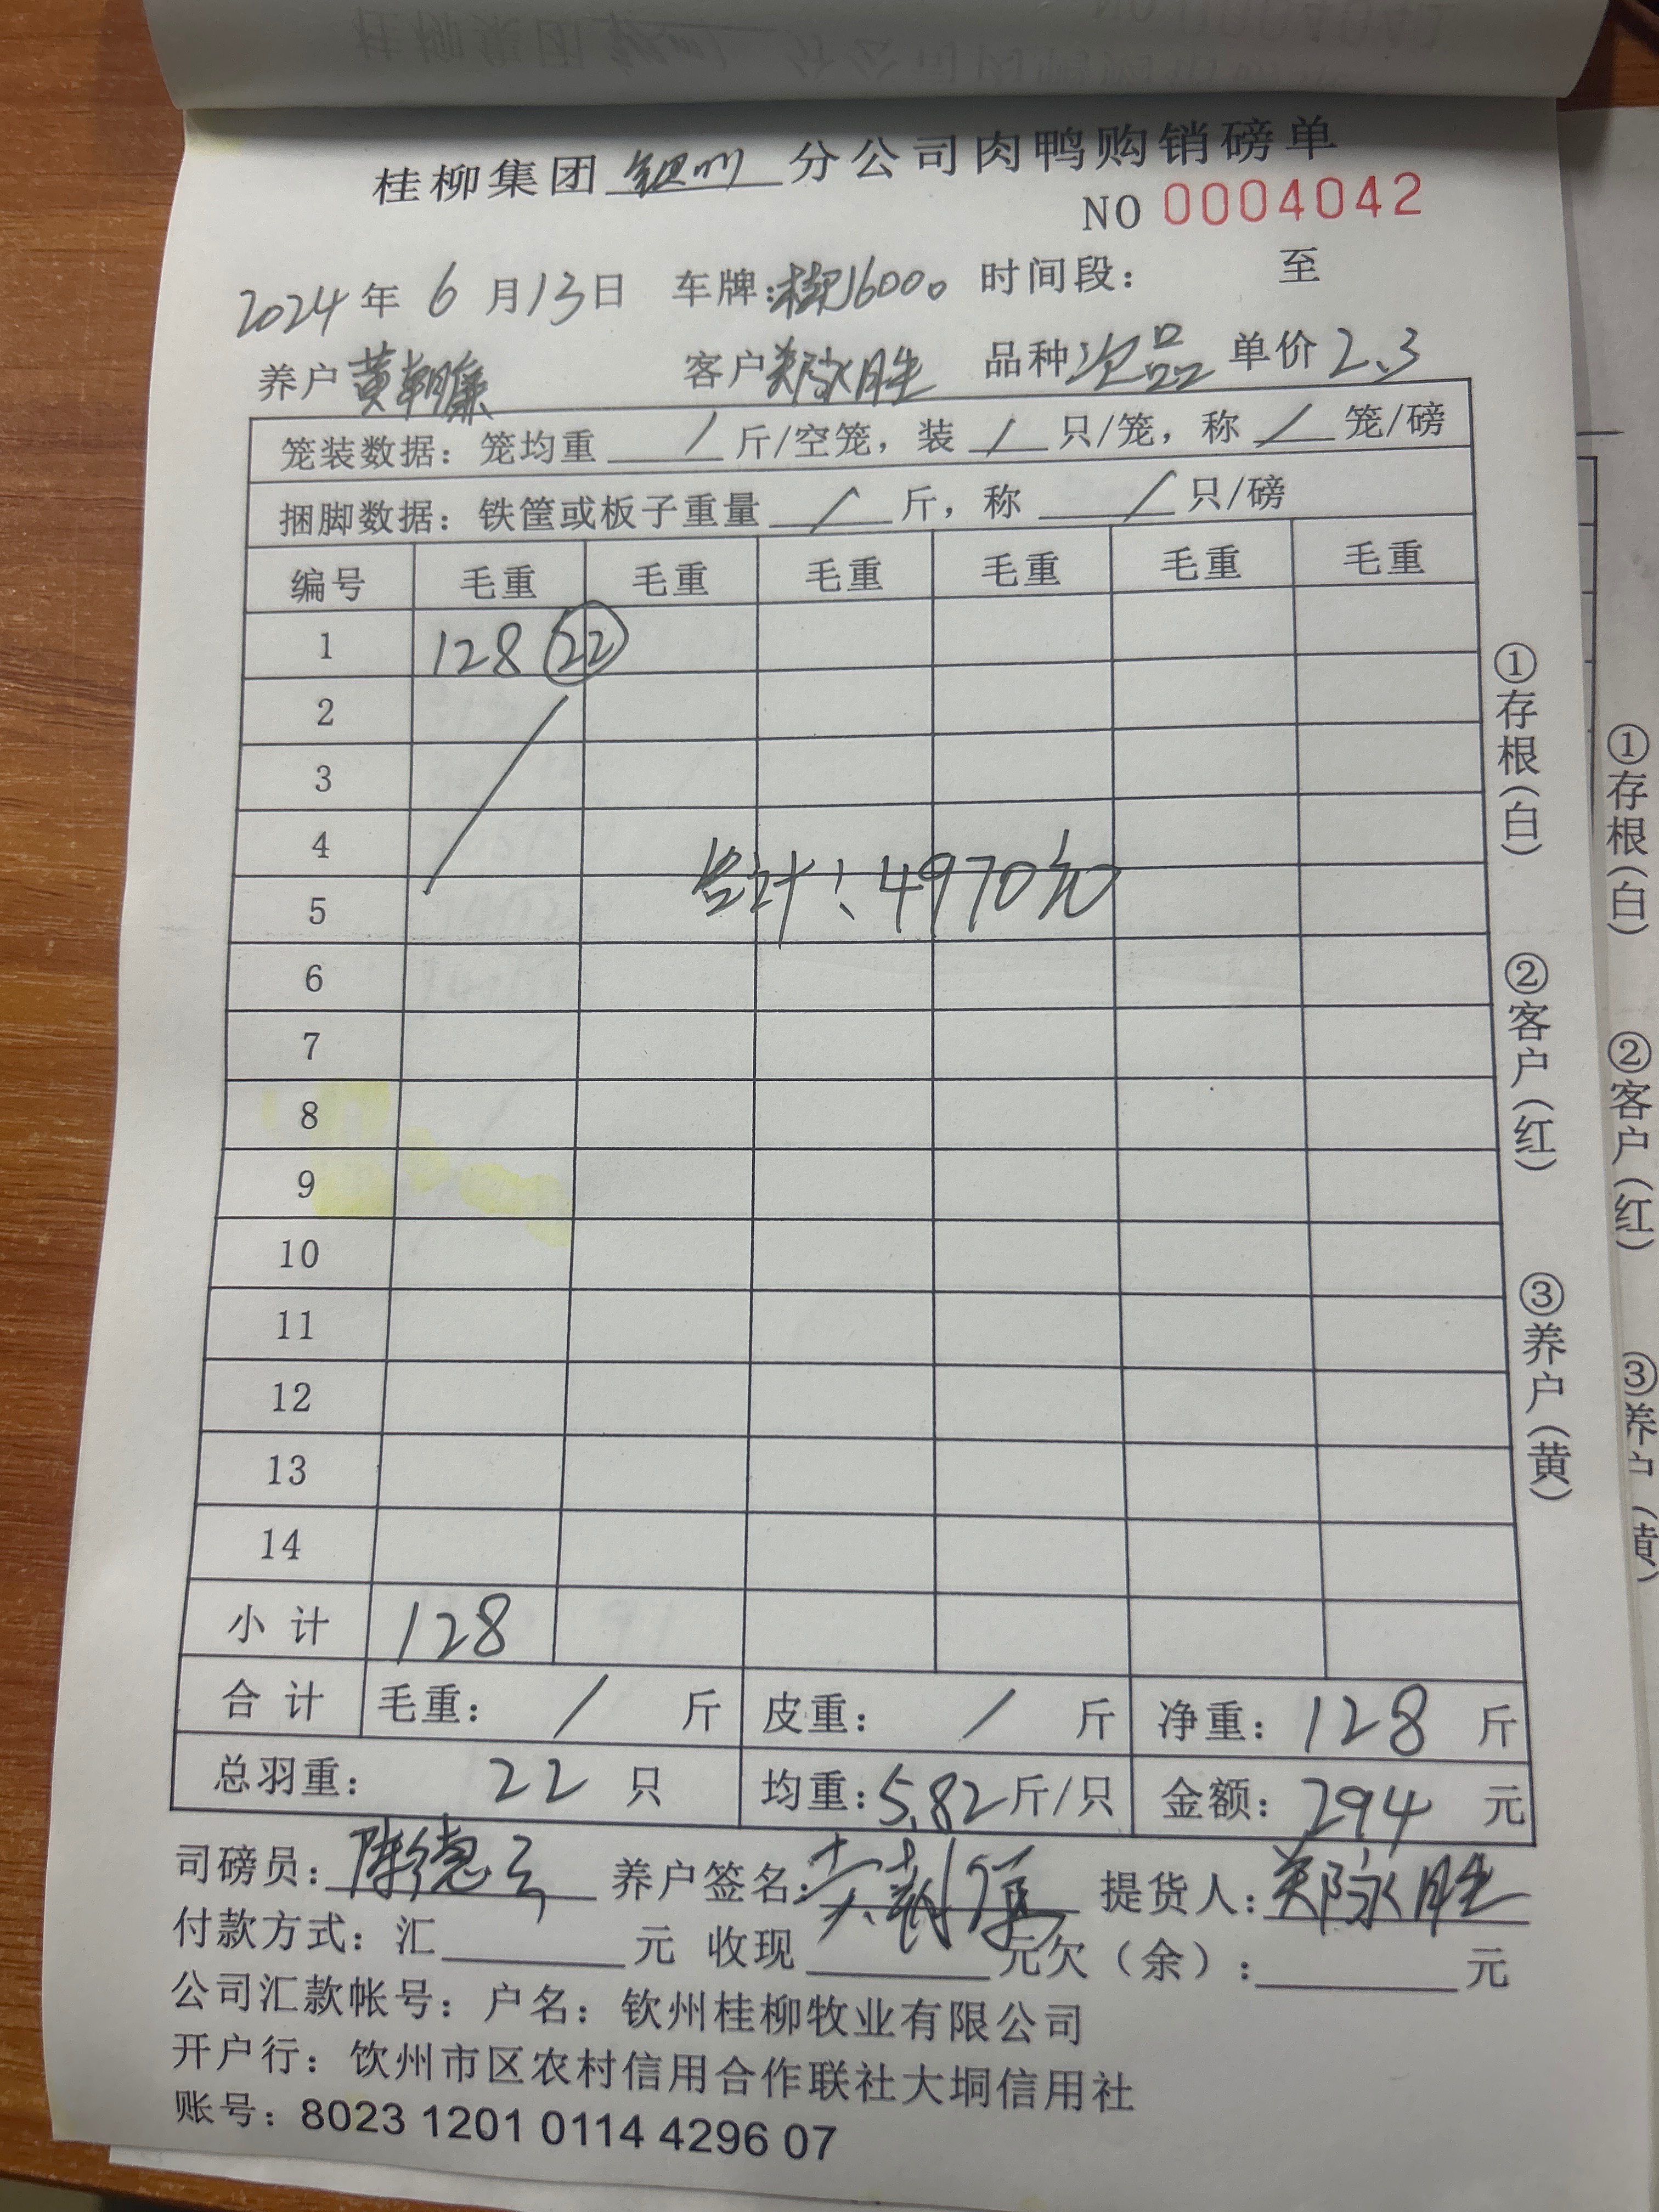 桂柳集团钦州分公司肉鸭购销磅单
NO 0004042
2024年6月13日 车牌:1600。 时间段: 至
养户黄朝廉 客户郑永胜 品种次品 单价2.3
笼装数据: 笼均重 / 斤/空笼, 装 / 只/笼, 称 / 笼/磅
捆脚数据: 铁筐或板子重量 / 斤, 称 / 只/磅
编号 毛重 毛重 毛重 毛重 毛重 毛重
1 128 22
2
3
4
合计: 4970元
5
6
7
8
9
10
11
12
13
14
小计 128
合计 毛重: / 斤 皮重: / 斤 净重: 128 斤
总羽重: 22 只 均重: 5.82斤/只 金额: 294 元
司磅员: 陈德 养户签名: 提货人: 郑永胜
付款方式: 汇 元 收现 元欠(余): 元
公司汇款帐号: 户名: 钦州桂柳牧业有限公司
开户行: 钦州市区农村信用合作联社大垌信用社
账号: 8023 1201 0114 4296 07
①存根(白)
②客户(红)
③养户(黄)
①存根(白)
②客户(红)
③养户(黄)